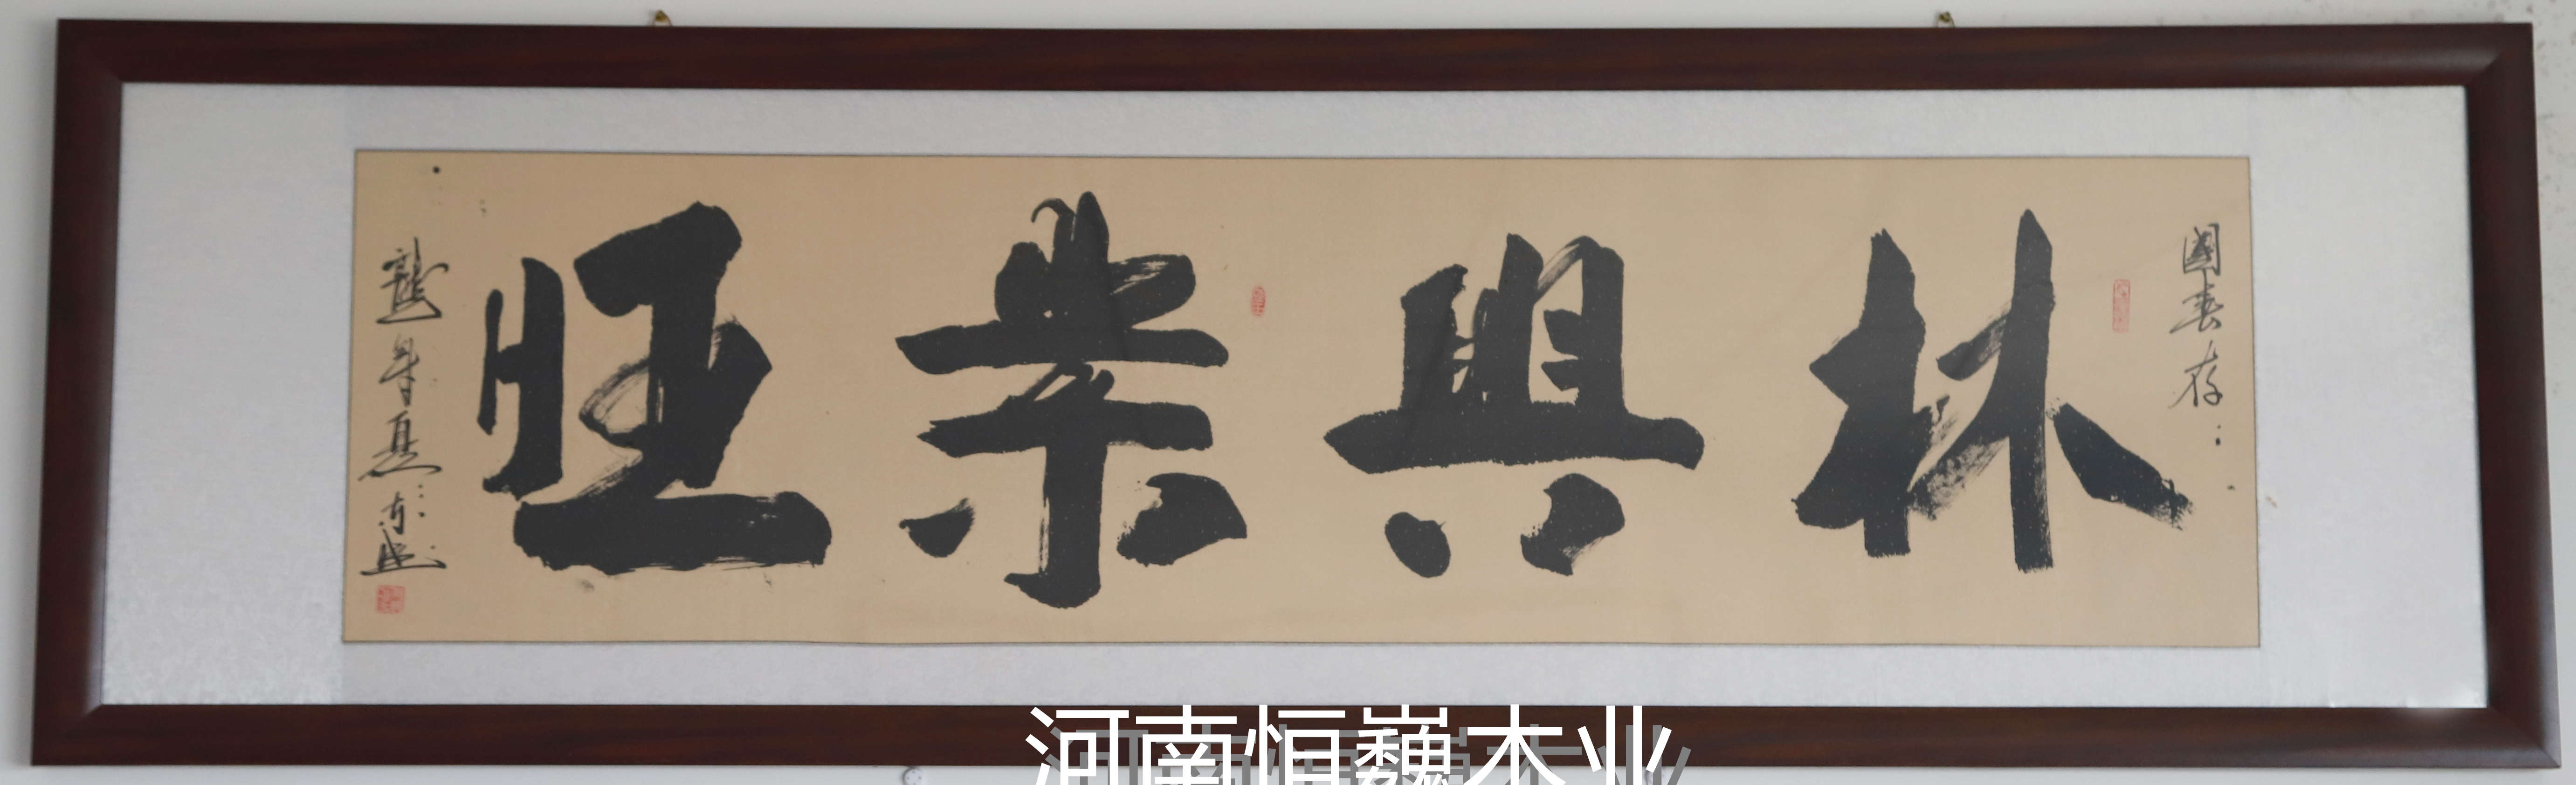 國春存
林興業旺
龍年夏
河南恒巍木业